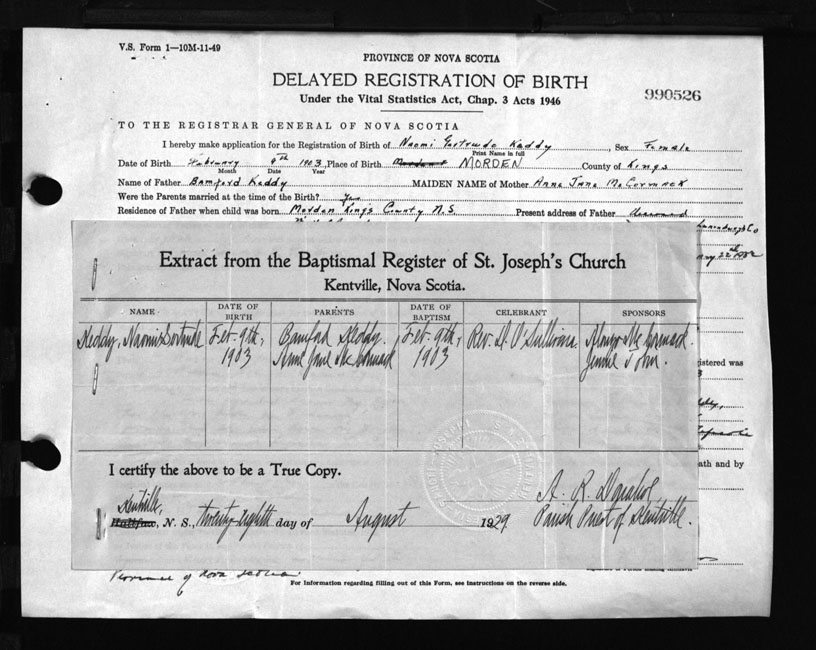 V.S. Form 1—10M-11-49
PROVINCE OF NOVA SCOTIA
DELAYED REGISTRATION OF BIRTH
990526
Under the Vital Statistics Act, Chap. 3 Acts 1946
TO THE REGISTRAR GENERAL OF NOVA SCOTIA
I hereby make application for the Registration of Birth of Naomi Gertrude Keddy, Sex Female
Print Name in full
Date of Birth February 9th 1903, Place of Birth MORDEN County of Kings
Month Date Year
Name of Father Bamford Keddy MAIDEN NAME of Mother Anne Jane McCormack
Were the Parents married at the time of the Birth? Yes
Residence of Father when child was born Morden King's County N.S. Present address of Father Deceased
Lunenburg Co
22nd
Extract from the Baptismal Register of St. Joseph's Church
Kentville, Nova Scotia.
NAME DATE OF BIRTH PARENTS DATE OF BAPTISM CELEBRANT SPONSORS
Keddy, Naomi Gertrude Feb. 9th, Bamford Keddy. Feb. 9th, Rev. D. O'Sullivan Alonzo McCormack
1903 Anne Jane McCormack 1903 Jennie John.
istered was
I certify the above to be a True Copy.
ath and by
Kentville,
Halifax, N. S., twenty-eighth day of August 1929
A. R.
Parish Priest of Kentville.
Province of Nova Scotia
For Information regarding filling out of this Form, see Instructions on the reverse side.